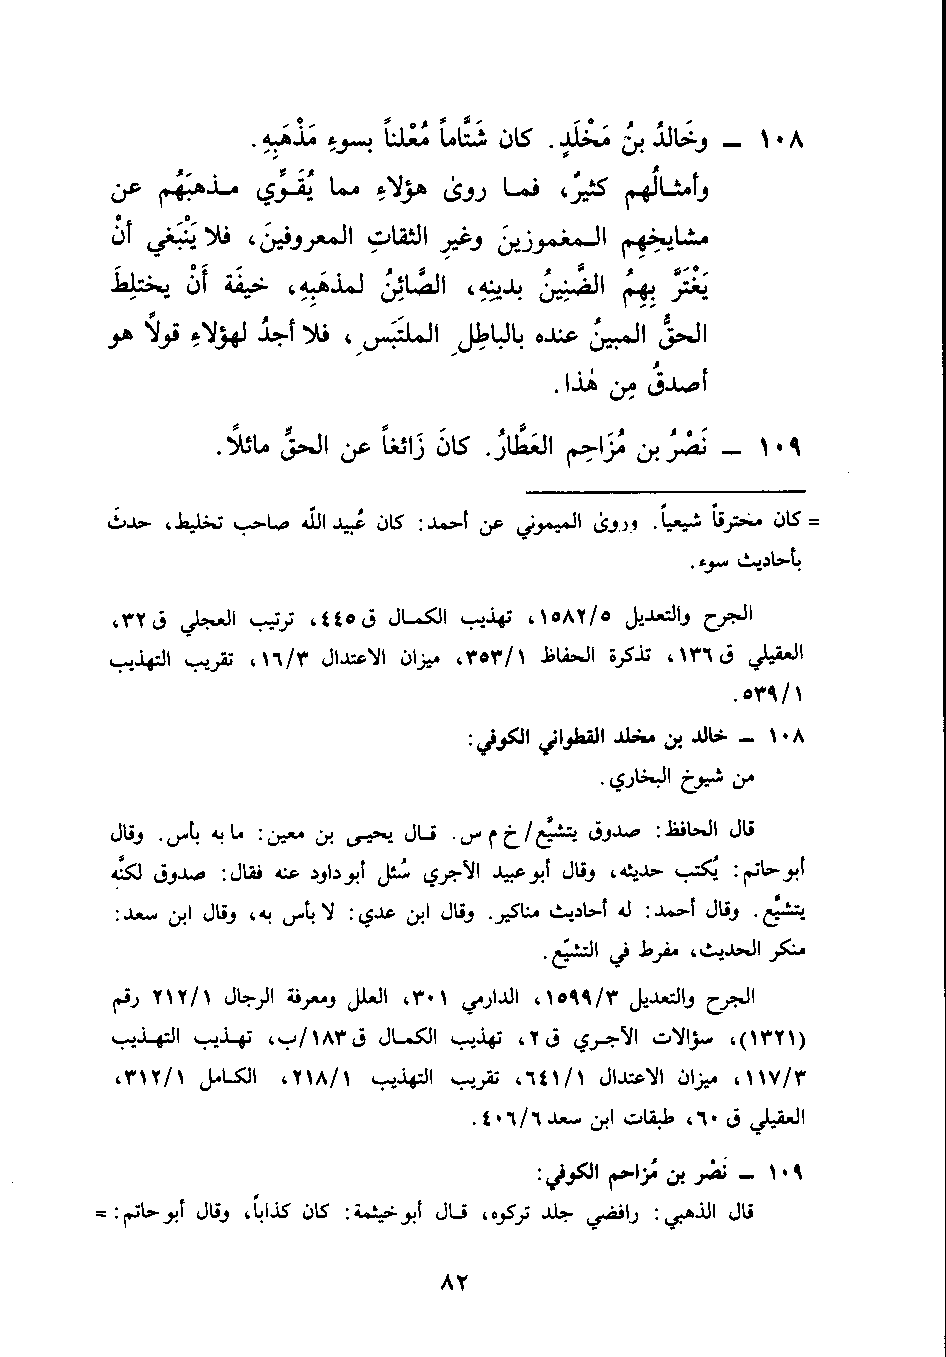 ١٠٨ ــ وخَالدُ بنُ مَخْلَدٍ. كان شَتَّاماً مُعْلناً بسوءِ مَذْهَبِهِ.
وأمثـالُهم كثيرٌ، فمـا روىٰ هؤلاءِ ممـا يُقَـوِّي مـذهبَهُم عن
مشايخِهِم المـغموزينَ وغيرِ الثقاتِ المعروفينَ، فلا يَنْبَغي أنْ
يَغْتَرَّ بِهِمُ الضَّنِينُ بدينِهِ، الصَّائِنُ لمذهَبِهِ، خيفَة أَنْ يختلِطَ
الحقُّ المبينُ عنده بالباطِلِ الملتَبَسِ، فلا أجدُ لهؤلاءِ قولاً هو
أصدقُ مِن هٰذا.
١٠٩ ــ نَصْرُ بن مُزَاحِم العَطَّارُ. كانَ زَائغاً عن الحقِّ مائلاً.
= كان محترقاً شيعياً. وروىٰ الميموني عن أحمد: كان عُبيد اللّٰه صاحب تخليط، حدثَ
بأحاديث سوء.
الجرح والتعديل ١٥٨٢/٥، تهذيب الكمـال ق٤٤٥، ترتيب العجلي ق٣٢،
العقيلي ق١٣٦، تذكرة الحفاظ ٣٥٣/١، ميزان الاعتدال ١٦/٣، تقريب التهذيب
٥٣٩/١.
١٠٨ ــ خالد بن مخلد القطواني الكوفي:
من شيوخ البخاري.
قال الحافظ: صدوق يتشيَّع/خ م س. قـال يحيـى بن معين: ما به بأس. وقال
أبو حاتم: يُكتب حديثه، وقال أبو عبيد الآجري سُئل أبو داود عنه فقال: صدوق لكنَّه
يتشيَّع. وقال أحمد: له أحاديث مناكير. وقال ابن عدي: لا بأس به، وقال ابن سعد:
منكر الحديث، مفرط في التشيّع.
الجرح والتعديل ١٥٩٩/٣، الدارمي ٣٠١، العلل ومعرفة الرجال ٢١٢/١ رقم
(١٣٢١)، سؤالات الآجـري ق٢، تهذيب الكمـال ق١٨٣/ب، تهـذيب التهـذيب
١١٧/٣، ميزان الاعتدال ٦٤١/١، تقريب التهذيب ٢١٨/١، الكـامل ٣١٢/١،
العقيلي ق ٦٠، طبقات ابن سعد ٤٠٦/٦.
١٠٩ ــ نَصْر بن مُزاحم الكوفي:
قال الذهبي: رافضي جلد تركوه، قـال أبو خيثمة: كان كذاباً، وقال أبو حاتم: =
٨٢